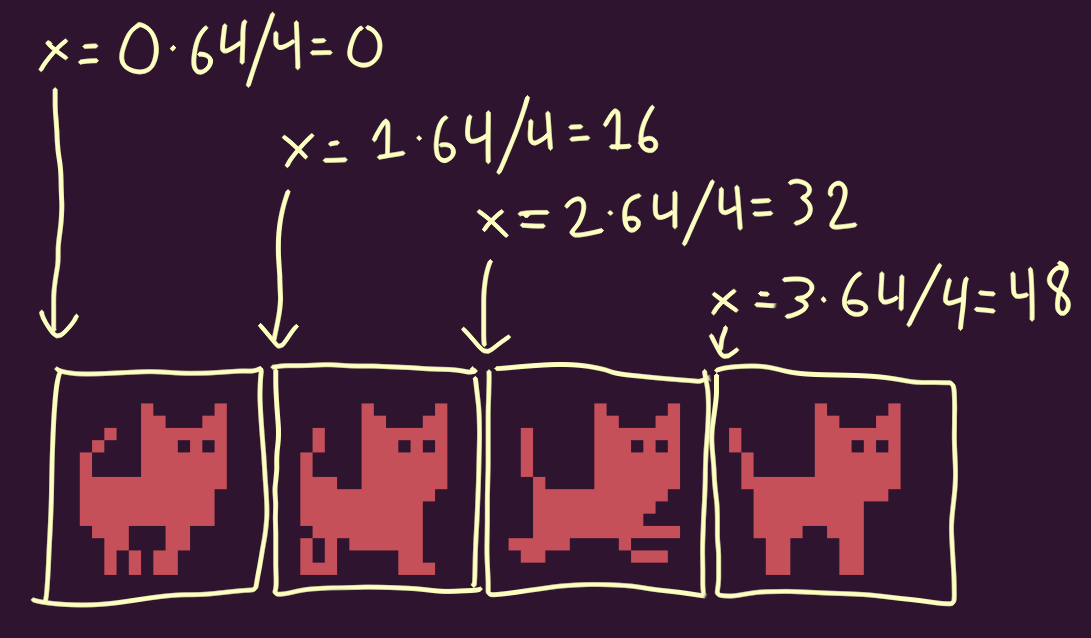 x = 0·64/4 = 0
x = 1·64/4 = 16
x = 2·64/4 = 32
x = 3·64/4 = 48